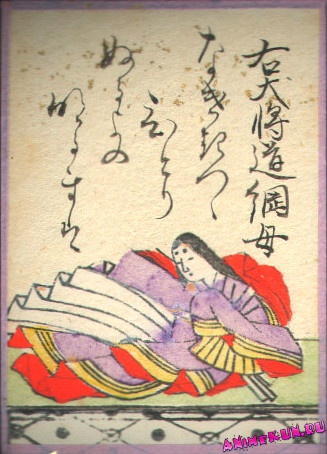 右大将道綱母
なけきつゝ
ひとり
ぬるよの
明るまは
ANIMEKUN.RU